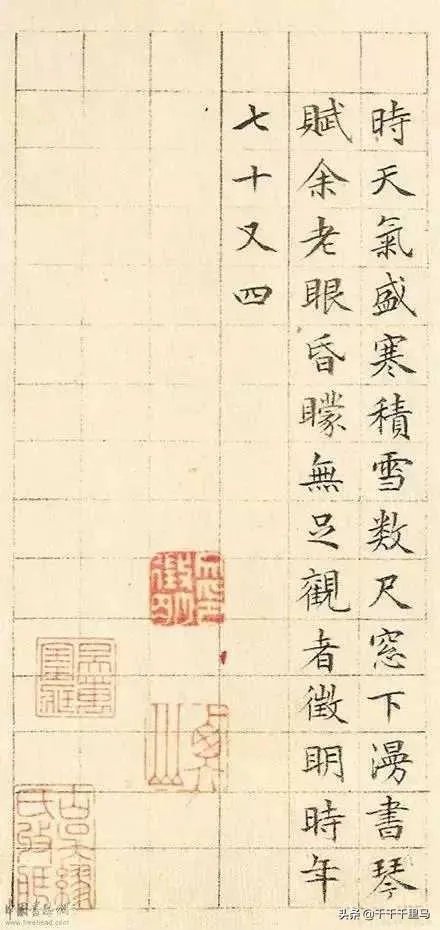 時天氣盛寒積雪数尺窓下漫書琴
賦余老眼昏矇無足觀者徵明時年
七十又四
头条 @千千千里马
www.freehead.com